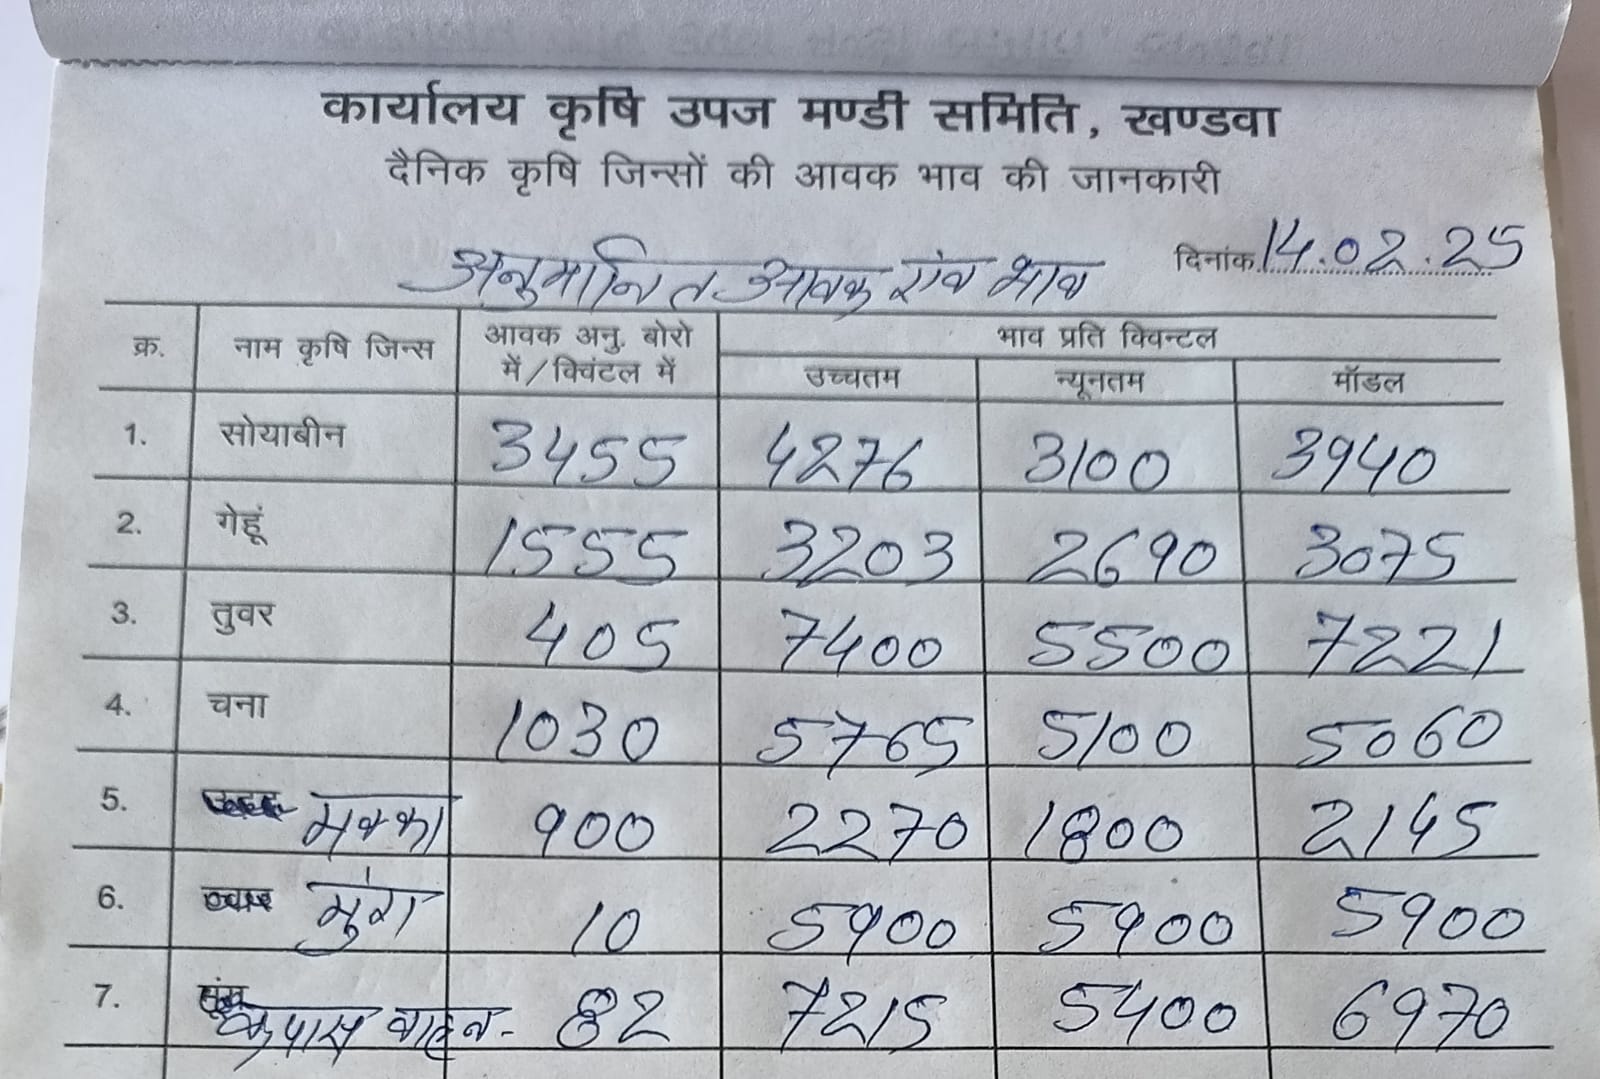 कार्यालय कृषि उपज मण्डी समिति, खण्डवा
दैनिक कृषि जिन्सों की आवक भाव की जानकारी
दिनांक 14.02.25
अनुमानित आवक एंव भाव
क्र. नाम कृषि जिन्स आवक अनु. बोरो में/क्विंटल में भाव प्रति क्विन्टल
उच्चतम न्यूनतम मॉडल
1. सोयाबीन 3455 4276 3100 3940
2. गेहूं 1555 3203 2690 3075
3. तुवर 405 7400 5500 7221
4. चना 1030 5765 5100 5060
5. मक्का 900 2270 1800 2145
6. मुंग 10 5900 5900 5900
7. कपास वाहन- 82 7215 5400 6970